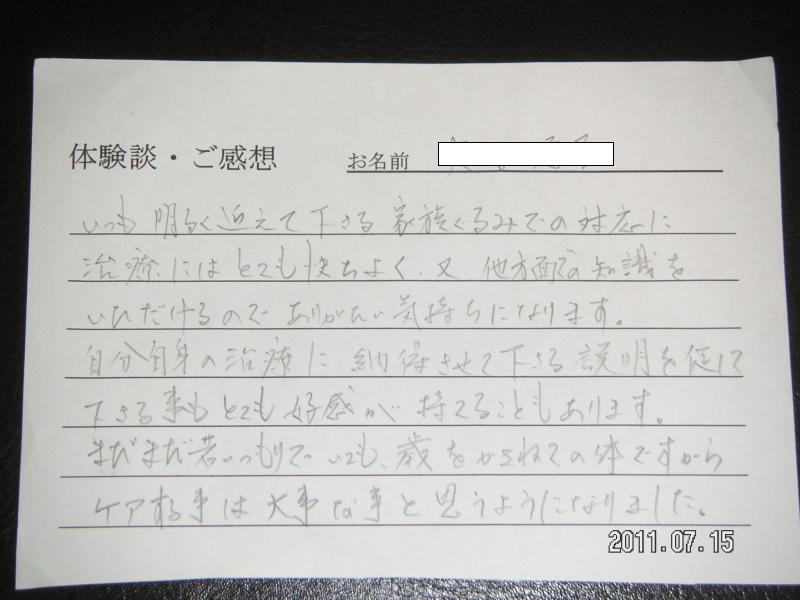 体験談・ご感想 お名前
いつも 明るく迎えて下さる 家族ぐるみでの対応に
治療にはとても快ちよく、又、他方面での知識を
いただけるので ありがたい気持ちになります。
自分自身の治療に 納得させて下さる 説明を促して
下さる事も とても 好感が 持てることもあります。
まだまだ若いつもりで いても、歳をかさねての体ですから
ケアする事は 大事な事と思うようになりました。
2011.07.15